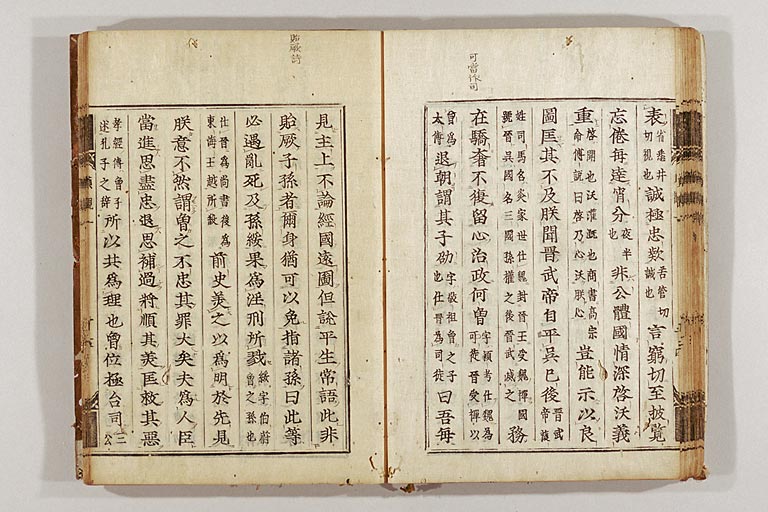 可當作司
表省悉井切視也誠極忠款苦管切誠也言窮切至披覽
忘倦每達宵分夜半也非公體國情深啓沃義
重啓開也沃灌漑也商書高宗命傅説曰啓乃心沃朕心豈能示以良
圖匡其不及朕聞晋武帝自平吳已後晋武帝諱
姓司馬名炎家世仕魏封晋王受魏禪國號晋吳國名三國孫權之後晋武滅之務
在驕奢不復留心治政何曾字穎考仕魏為司徒晋受禪以
曾為太傅退朝謂其子劭字敬祖曾之子也仕晋為司徒曰吾每
貽厥詩
見主上不論經國遠圖但説平生常語此非
貽厥子孫者爾身猶可以免指諸孫曰此等
必遇亂死及孫綏果為淫刑所戮綏字伯蔚曾之孫也
仕晋為尚書後為東海王越所殺前史美之以為明於先見
朕意不然謂曾之不忠其罪大矣夫為人臣
當進思盡忠退思補過將順其美匡救其惡
孝經傳曾子述孔子之辭所以共為理也曾位極台司三公